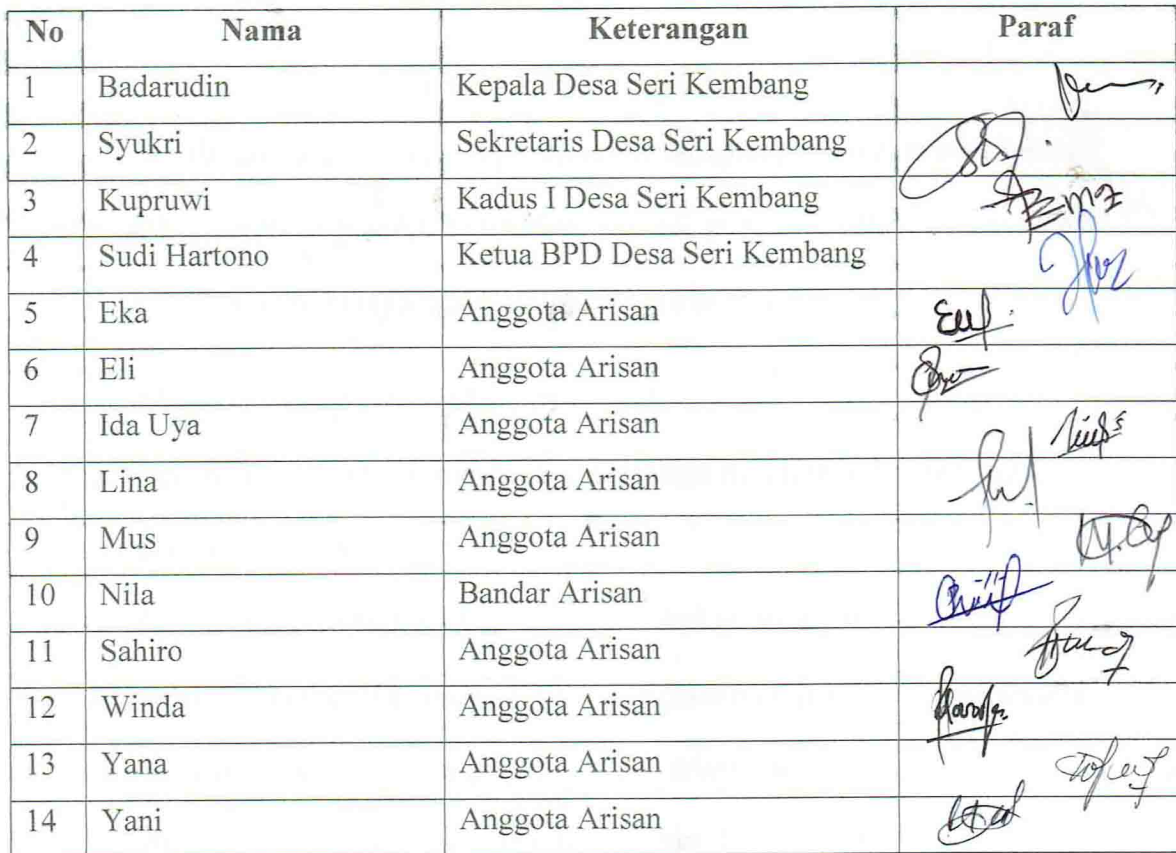 No Nama Keterangan Paraf
1 Badarudin Kepala Desa Seri Kembang
2 Syukri Sekretaris Desa Seri Kembang
3 Kupruwi Kadus I Desa Seri Kembang
4 Sudi Hartono Ketua BPD Desa Seri Kembang
5 Eka Anggota Arisan
6 Eli Anggota Arisan
7 Ida Uya Anggota Arisan
8 Lina Anggota Arisan
9 Mus Anggota Arisan
10 Nila Bandar Arisan
11 Sahiro Anggota Arisan
12 Winda Anggota Arisan
13 Yana Anggota Arisan
14 Yani Anggota Arisan